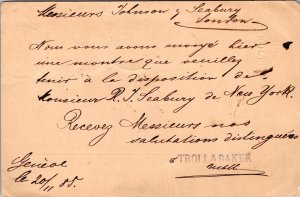 Messieurs Johnson & Seabury
London
Nous vous avons envoyé hier
une montre que veuillez
tenir à la disposition de
Monsieur R. J. Seabury de New York.
Recevez Messieurs nos
salutations distinguées
TROLL & BAKER
Genève
le 20/11 85.